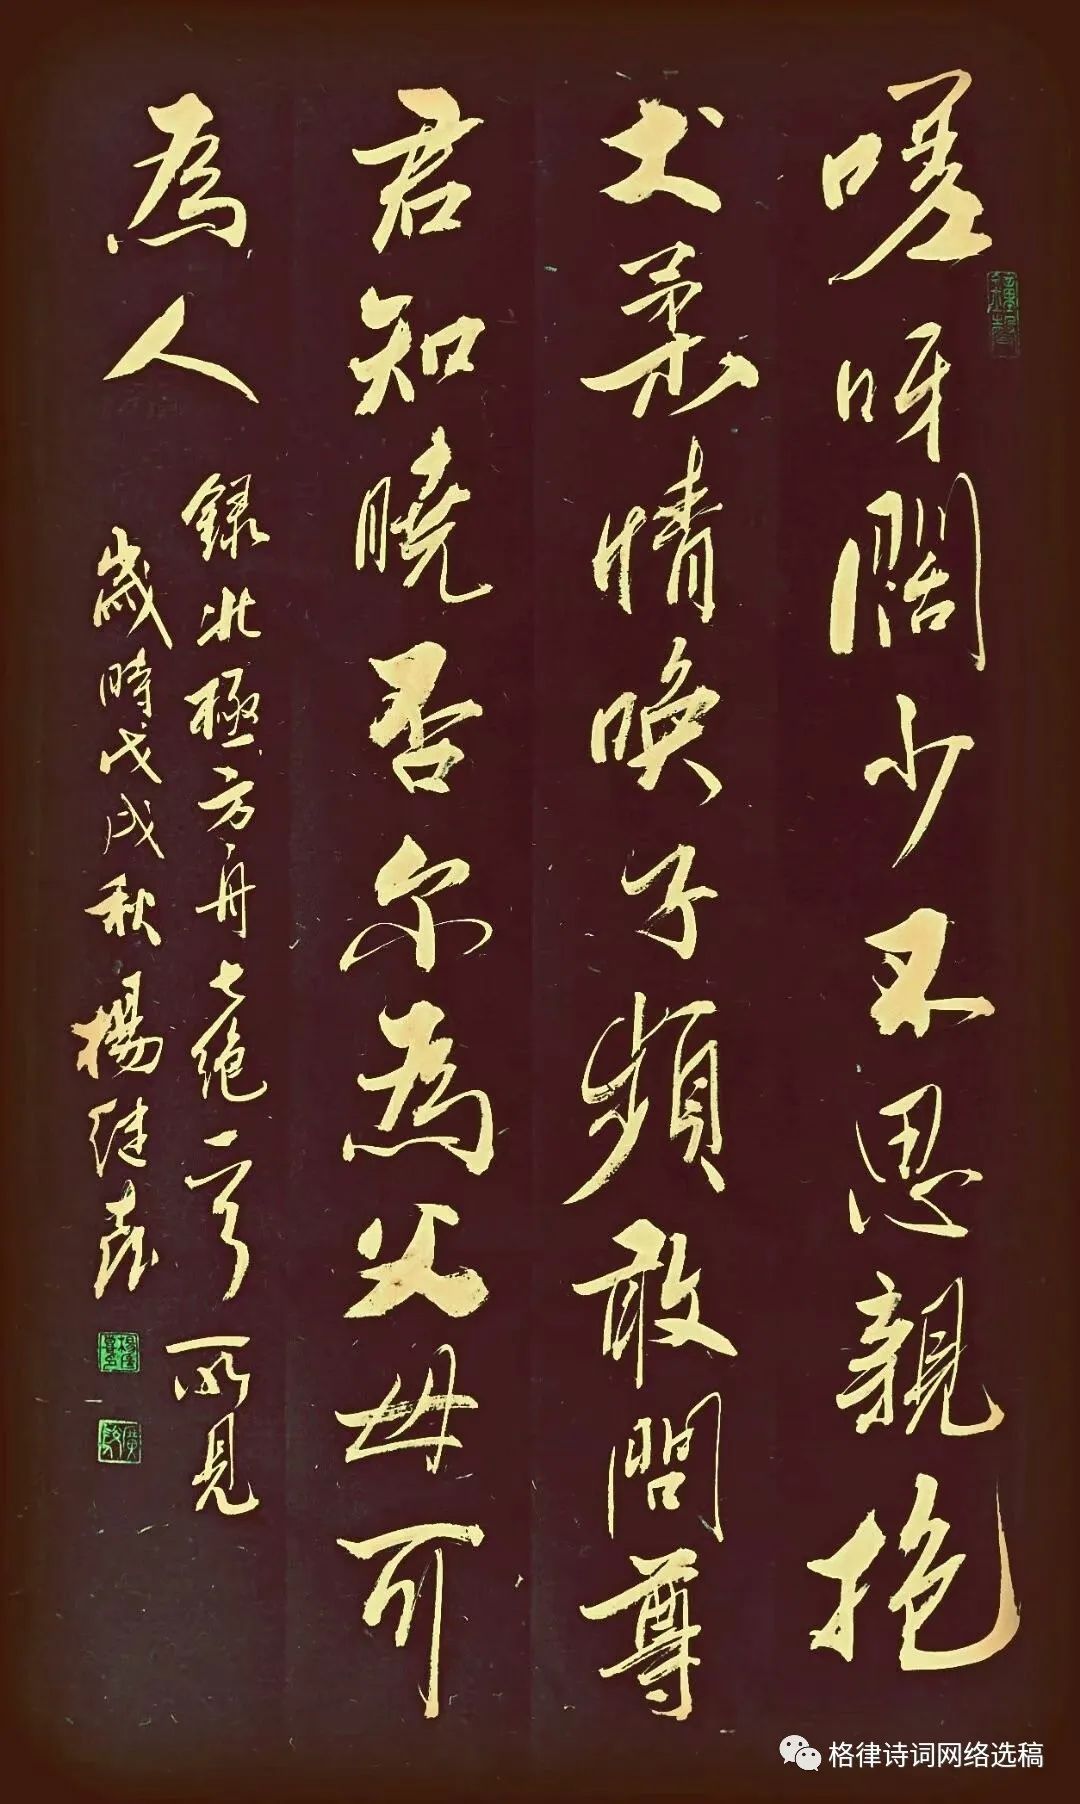 嗟呀闊少不思親抱
犬柔情喚子頻敢問尊
君知曉否尔為父母可
為人
録北極方舟七绝一首 所見
歲時戊戌秋楊继森
格律诗词网络选稿